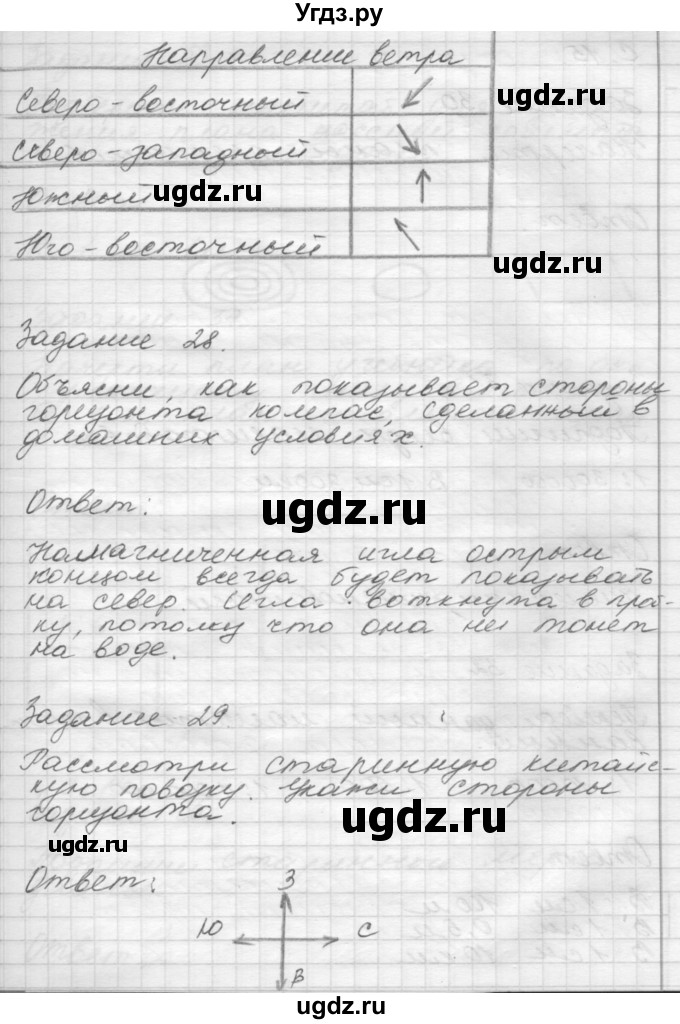 Угдз.ру
Направление ветра
Северо-восточный ↙
ugdz.ru
Северо-западный ↘
Южный ↑
ugdz.ru
Юго-восточный ↖
ugdz.ru
Задание 28.
Объясни, как показывает стороны
горизонта компас, сделанный в
домашних условиях.
Ответ:
ugdz.ru
Намагниченная игла острым
концом всегда будет показывать
на север. Игла воткнута в проб-
ку, потому что она не тонет
на воде.
Задание 29.
Рассмотри старинную китайс-
кую повозку. Укажи стороны
горизонта.
ugdz.ru
ugdz.ru
Ответ:
З
Ю С
В
ugdz.ru